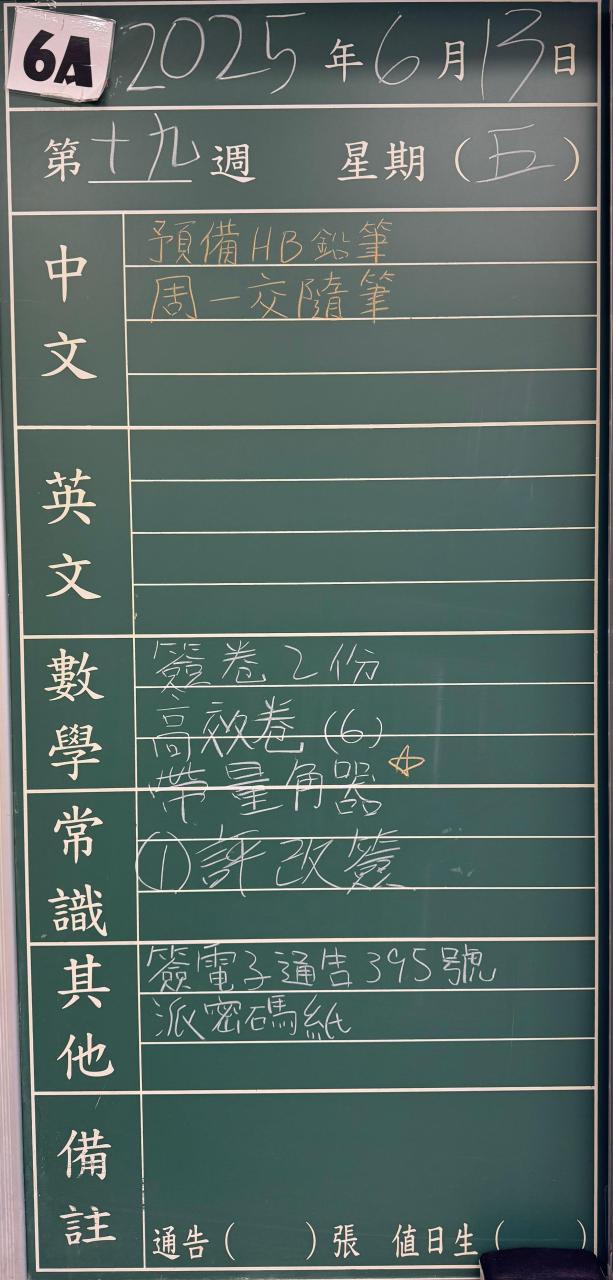 6A
2025年6月13日
第十九週 星期（五）
中文
預備HB鉛筆
周一交隨筆
英文
數學
簽卷2份
高效卷(6)
帶量角器☆
常識
①評改簽
其他
簽電子通告395號
派密碼紙
備註
通告（ ）張 值日生（ ）